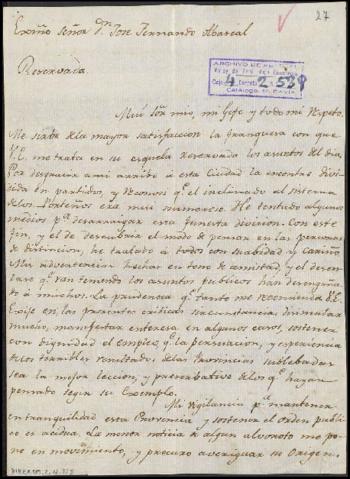 27
Exmõ Señor Dn. Jose Fernando Abascal
Reservada
ARCHIVO DE
Caja 4 Carpeta 2-539
CATALOGO
Muy Sor. mio, mi Gefe y todo mi respeto.
Me sirbe dela mayor satisfaccion la franqueza con que
V.E. me trata en su esquela reservada los asuntos del dia.
Por desgracia á mi arribo á esta Ciudad la encontre divi-
dida en partidos, y
delos Porteños era muy numeroso. He tentado algunos
medios pa. desarraigar esta funesta divicion. Con este
fin, y el de descubrir el modo de pensar en las personas
de distincion, he tratado á todos con suabidad y cariño
Mis advertencias hechas en tono de amistad, y el desen-
qe. van teniendo los asuntos publicos han desengaña-
do á muchos. La prudencia qe. tanto me recomienda V.E.
Exije en las presentes criticas circunstancias disimular
mucho, manifestar entereza en algunos casos, sostener
con dignidad el empleo, qe. la persuacion, y esperiencia
delos terribles resultados delas Provincias sublebadas
sea la mejor leccion, y preserbativo delos qe. hayan
pensado seguir su Exemplo.
Mi vigilancia pa. mantener
en tranquilidad esta Provincia y sostener el orden publi-
co es asidua. La menor noticia de algun alvoroto me po-
ne en movimiento, y procuro averiguar su origen.